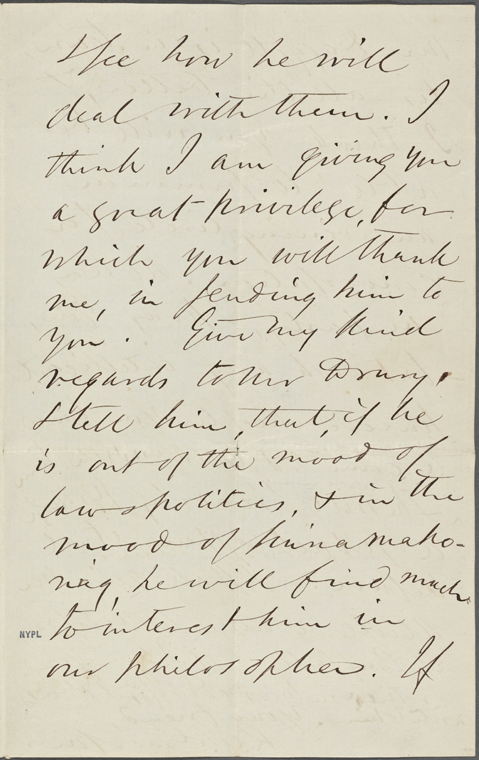 & see how he will
deal with them. I
think I am giving you
a great privilege, for
which you will thank
me, in sending him to
you. Give my kind
regards to Mr Drury,
& tell him, that, if he
is out of the mood of
law & politics, & in the
mood of
he will find much
NYPL
to interest him in
our philosopher. If